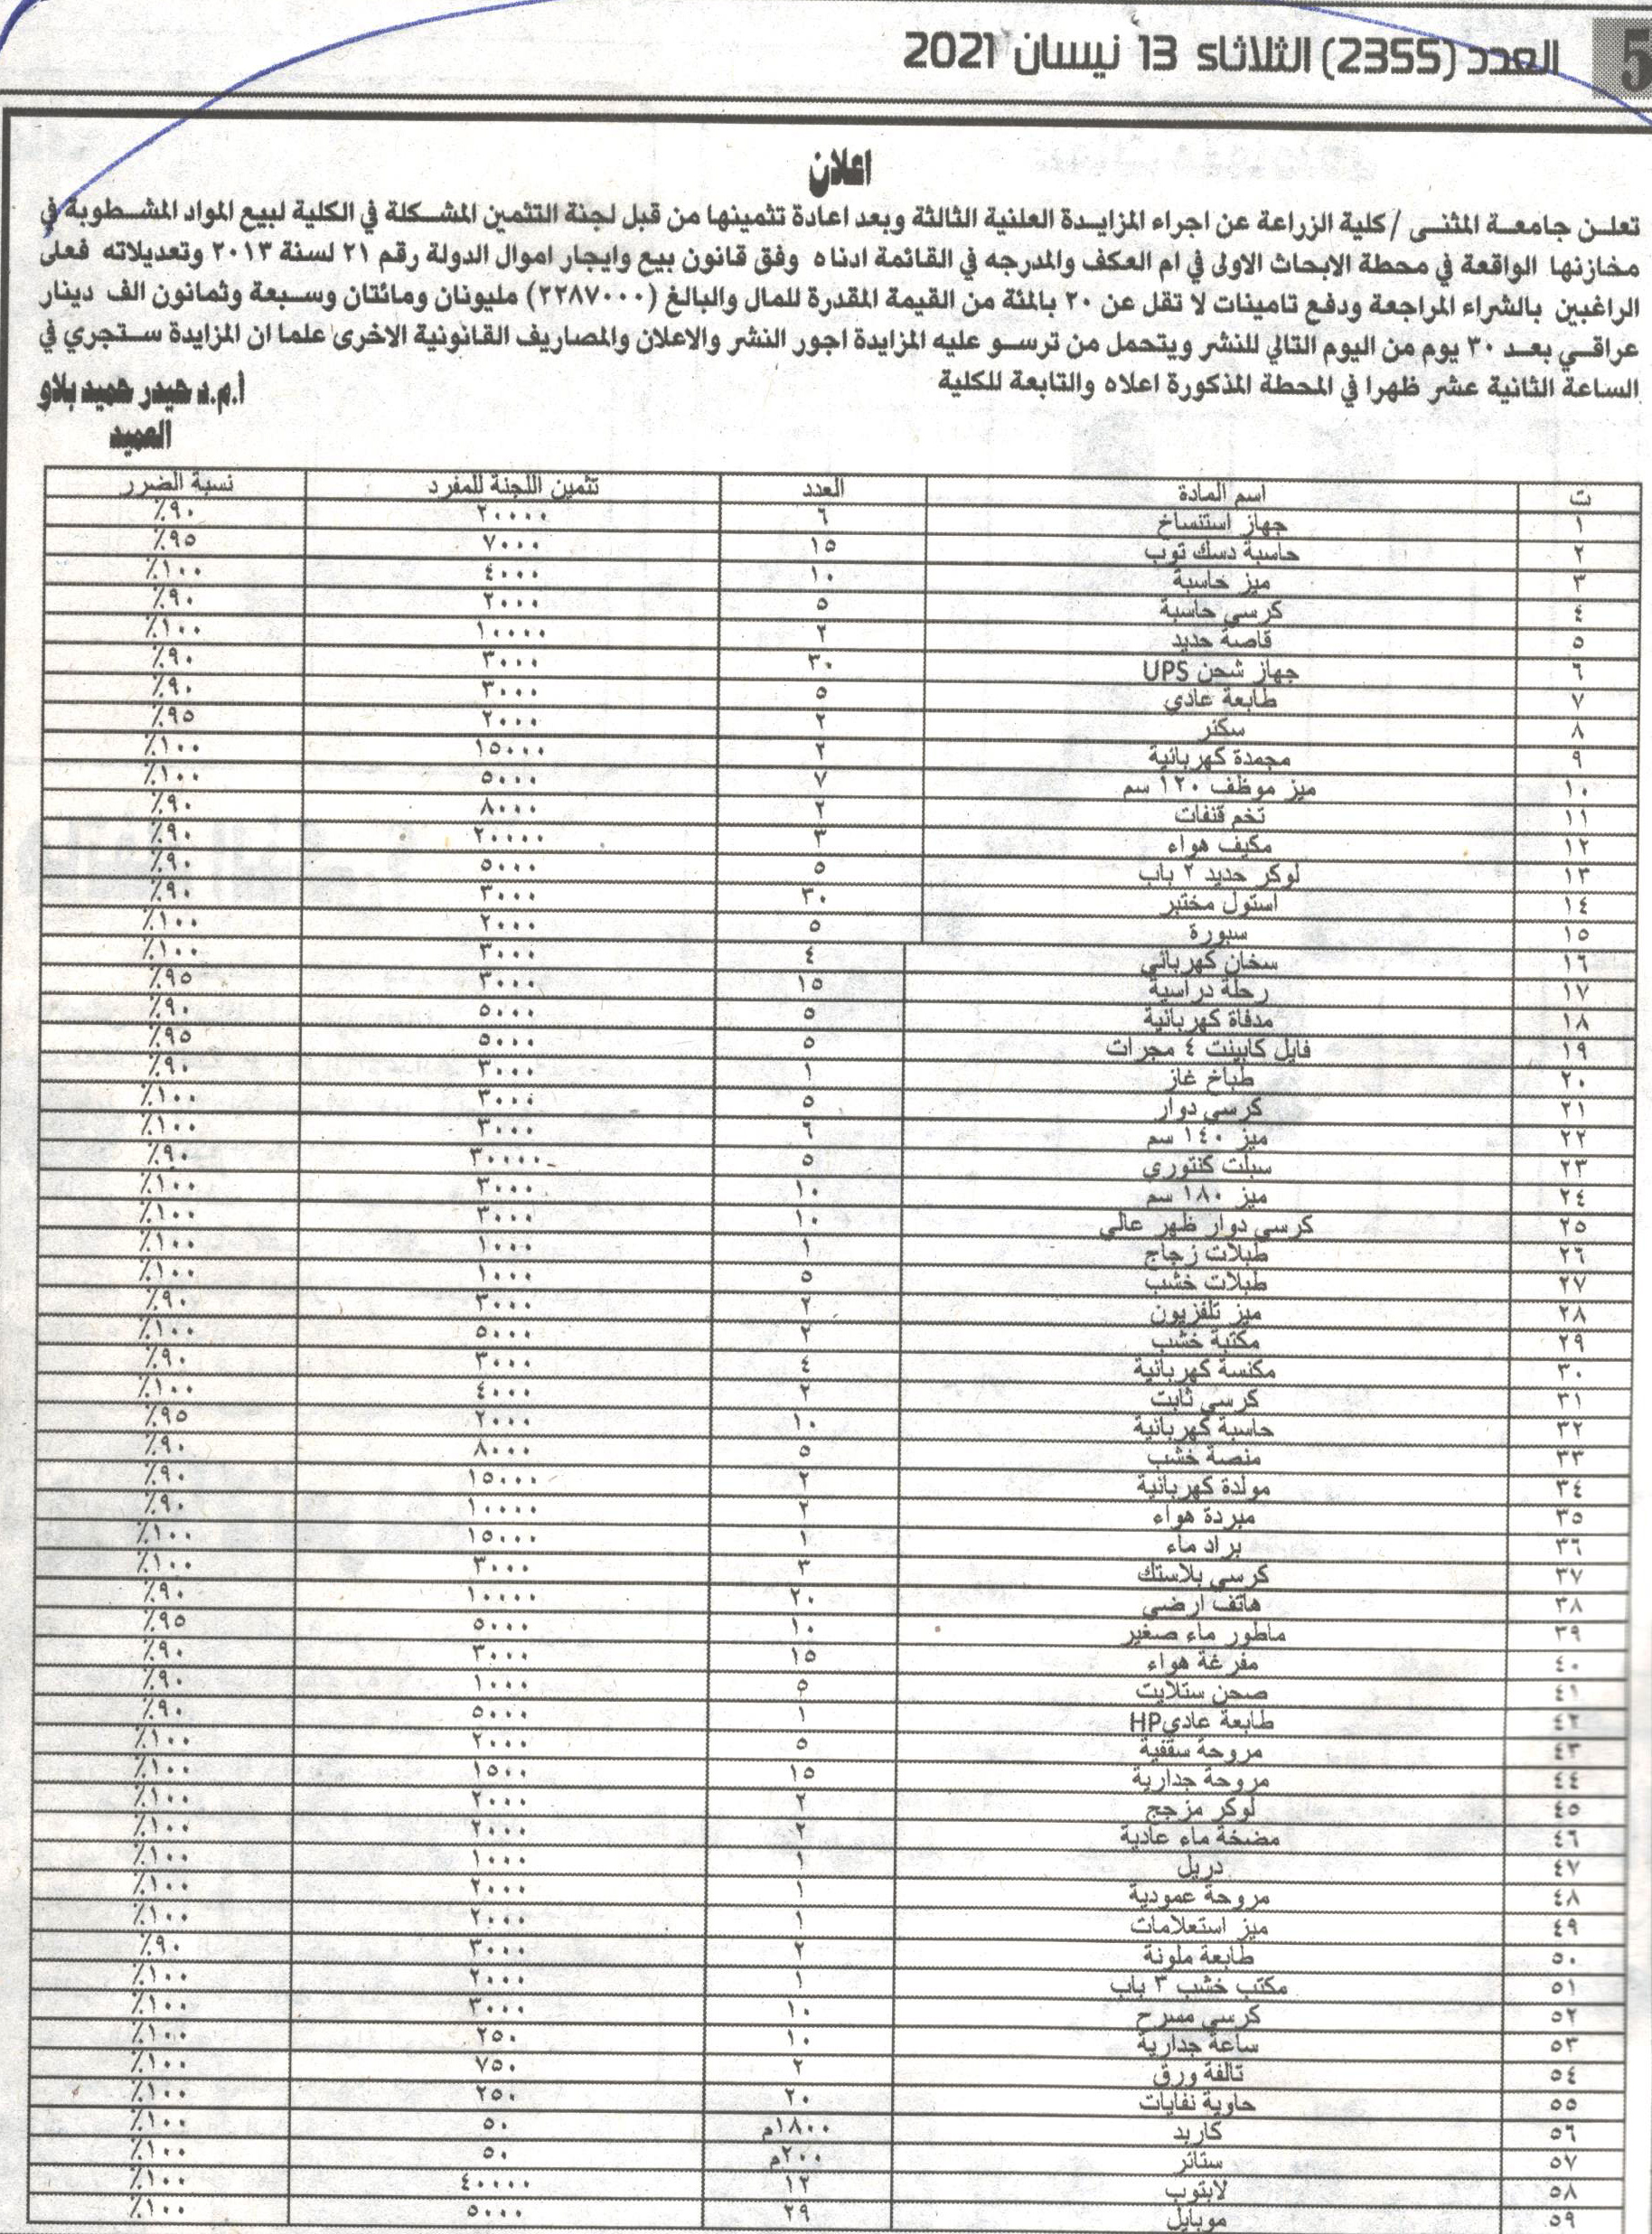 5 العدد (2355) الثلاثاء 13 نيسان 2021
اعلان
تعلن جامعة المثنى / كلية الزراعة عن اجراء المزايدة العلنية الثالثة وبعد اعادة تثمينها من قبل لجنة التثمين المشكلة في الكلية لبيع المواد المشطوبة في
مخازنها الواقعة في محطة الابحاث الاولى في ام العكف والمدرجه في القائمة ادناه وفق قانون بيع وايجار اموال الدولة رقم ٢١ لسنة ٢٠١٣ وتعديلاته فعلى
الراغبين بالشراء المراجعة ودفع تامينات لا تقل عن ٢٠ بالمئة من القيمة المقدرة للمال والبالغ (٢٢٨٧٠٠٠) مليونان ومائتان وسبعة وثمانون الف دينار
عراقي بعد ٣٠ يوم من اليوم التالي للنشر ويتحمل من ترسو عليه المزايدة اجور النشر والاعلان والمصاريف القانونية الاخرى علما ان المزايدة ستجري في
الساعة الثانية عشر ظهرا في المحطة المذكورة اعلاه والتابعة للكلية
أ.م.د حيدر حميد بلاو
العميد
ت اسم المادة العدد تثمين اللجنة للمفرد نسبة الضرر
١ جهاز استنساخ ٦ ٢٠٠٠٠ ٩٠٪
٢ حاسبة دسك توب ١٥ ٧٠٠٠ ٩٥٪
٣ ميز حاسبة ١٠ ٤٠٠٠ ١٠٠٪
٤ كرسي حاسبة ٥ ٢٠٠٠ ٩٠٪
٥ قاصة حديد ٢ ١٠٠٠٠ ١٠٠٪
٦ جهاز شحن UPS ٣٠ ٣٠٠٠ ٩٠٪
٧ طابعة عادي ٥ ٣٠٠٠ ٩٠٪
٨ سكنر ٢ ٢٠٠٠ ٩٥٪
٩ مجمدة كهربائية ٢ ١٥٠٠٠ ١٠٠٪
١٠ ميز موظف ١٢٠ سم ٧ ٥٠٠٠ ١٠٠٪
١١ تخم قنفات ٢ ٨٠٠٠ ٩٠٪
١٢ مكيف هواء ٣ ٢٠٠٠٠ ٩٠٪
١٣ لوكر حديد ٢ باب ٥ ٥٠٠٠ ٩٠٪
١٤ استول مختبر ٣٠ ٣٠٠٠ ٩٠٪
١٥ سبورة ٥ ٢٠٠٠ ١٠٠٪
١٦ سخان كهربائي ٤ ٣٠٠٠ ١٠٠٪
١٧ رحلة دراسية ١٥ ٣٠٠٠ ٩٥٪
١٨ مدفاة كهربائية ٥ ٥٠٠٠ ٩٠٪
١٩ فايل كابينت ٤ مجرات ٥ ٥٠٠٠ ٩٥٪
٢٠ طباخ غاز ١ ٣٠٠٠ ٩٠٪
٢١ كرسي دوار ٥ ٣٠٠٠ ١٠٠٪
٢٢ ميز ١٤٠ سم ٦ ٣٠٠٠ ١٠٠٪
٢٣ سبلت كنتوري ٥ ٣٠٠٠٠ ٩٠٪
٢٤ ميز ١٨٠ سم ١٠ ٣٠٠٠ ١٠٠٪
٢٥ كرسي دوار ظهر عالي ١٠ ٣٠٠٠ ١٠٠٪
٢٦ طبلات زجاج ١ ١٠٠٠ ١٠٠٪
٢٧ طبلات خشب ٥ ١٠٠٠ ١٠٠٪
٢٨ ميز تلفزيون ٢ ٣٠٠٠ ٩٠٪
٢٩ مكتبة خشب ٢ ٥٠٠٠ ١٠٠٪
٣٠ مكنسة كهربائية ٤ ٣٠٠٠ ٩٠٪
٣١ كرسي ثابت ٢ ٤٠٠٠ ١٠٠٪
٣٢ حاسبة كهربائية ١٠ ٢٠٠٠ ٩٥٪
٣٣ منصة خشب ٥ ٨٠٠٠ ٩٠٪
٣٤ مولدة كهربائية ٢ ١٥٠٠٠ ٩٠٪
٣٥ مبردة هواء ٢ ١٠٠٠٠ ٩٠٪
٣٦ براد ماء ١ ١٥٠٠٠ ١٠٠٪
٣٧ كرسي بلاستك ٣ ٣٠٠٠ ١٠٠٪
٣٨ هاتف ارضي ٢٠ ١٠٠٠٠ ٩٠٪
٣٩ ماطور ماء صغير ١٠ ٥٠٠٠ ٩٥٪
٤٠ مفرغة هواء ١٥ ٣٠٠٠ ٩٠٪
٤١ صحن ستلايت ٥ ١٠٠٠ ٩٠٪
٤٢ طابعة عادي HP ١ ٥٠٠٠ ٩٠٪
٤٣ مروحة سقفية ٥ ٢٠٠٠ ١٠٠٪
٤٤ مروحة جدارية ١٥ ١٥٠٠ ١٠٠٪
٤٥ لوكر مزجج ٢ ٢٠٠٠ ١٠٠٪
٤٦ مضخة ماء عادية ٢ ٢٠٠٠ ١٠٠٪
٤٧ دريل ١ ١٠٠٠ ١٠٠٪
٤٨ مروحة عمودية ١ ٢٠٠٠ ١٠٠٪
٤٩ ميز استعلامات ١ ٢٠٠٠ ١٠٠٪
٥٠ طابعة ملونة ٢ ٣٠٠٠ ٩٠٪
٥١ مكتب خشب ٣ باب ١ ٢٠٠٠ ١٠٠٪
٥٢ كرسي مسرح ١٠ ٣٠٠٠ ١٠٠٪
٥٣ ساعة جدارية ١٠ ٢٥٠ ١٠٠٪
٥٤ تالفة ورق ٢ ٧٥٠ ١٠٠٪
٥٥ حاوية نفايات ٢٠ ٢٥٠ ١٠٠٪
٥٦ كاربد ١٨٠٠م ٥٠ ١٠٠٪
٥٧ ستائر ٢٠٠م ٥٠ ١٠٠٪
٥٨ لابتوب ١٢ ٤٠٠٠٠ ١٠٠٪
٥٩ موبايل ٢٩ ٥٠٠٠ ١٠٠٪